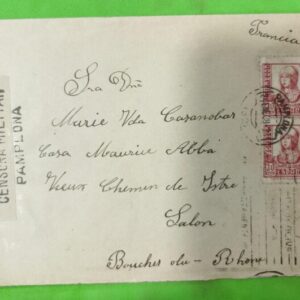 Francia
Sra Dñª
Marie Vda Casanobar
Casa Maurice Abba
Vieux Chemin de Istre
Salon
Bouches du - Rhône
CENSURA MILITAR
PAMPLONA